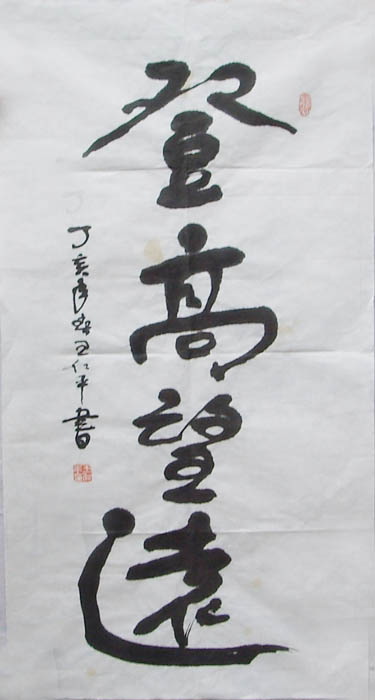 登高望遠
丁亥 王仁平書